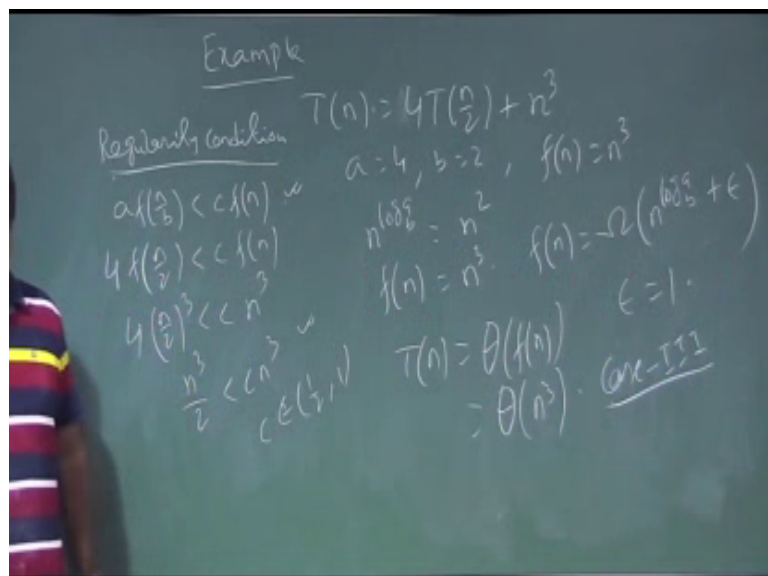 Example
T(n) = 4T(n/2) + n³
a=4, b=2, f(n)=n³
n^log_b^a = n²
f(n) = n³. f(n) = Ω(n^log_b^a + ε)
ε = 1.
T(n) = θ(f(n))
= θ(n³). Case-III
Regularity condition
af(n/b) < cf(n) ✓
4f(n/2) < cf(n)
4(n/2)³ < cn³
n³/2 < cn³ ✓
c ∈ (1/2, 1)